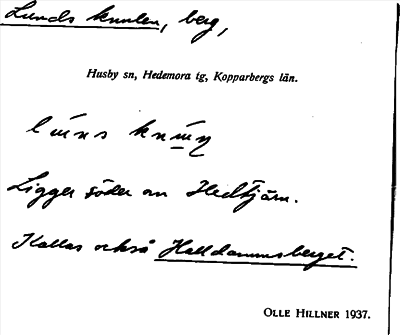 Lunds knulen, berg,
Husby sn, Hedemora tg, Kopparbergs län.
Ligger söder om Hedtjärn.
Kallas också Halldammsberget.
OLLE HILLNER 1937.